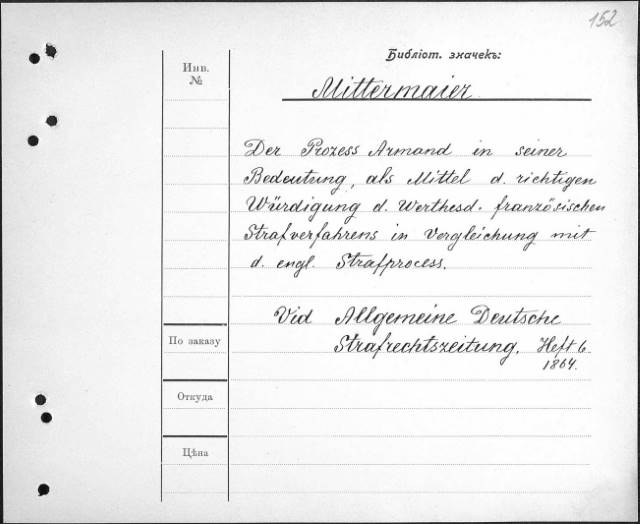 152
Библіот. значекъ:
Инв.
№
Mittermaier
Der Prozess Armand in seiner
Bedeutung, als Mittel d. richtigen
Würdigung d. Werthesd. französischen
Strafverfahrens in Vergleichung mit
d. engl. Strafprocess.
Vid Allgemeine Deutsche
Strafrechtszeitung. Heft 6
1864.
По заказу
Откуда
Цѣна